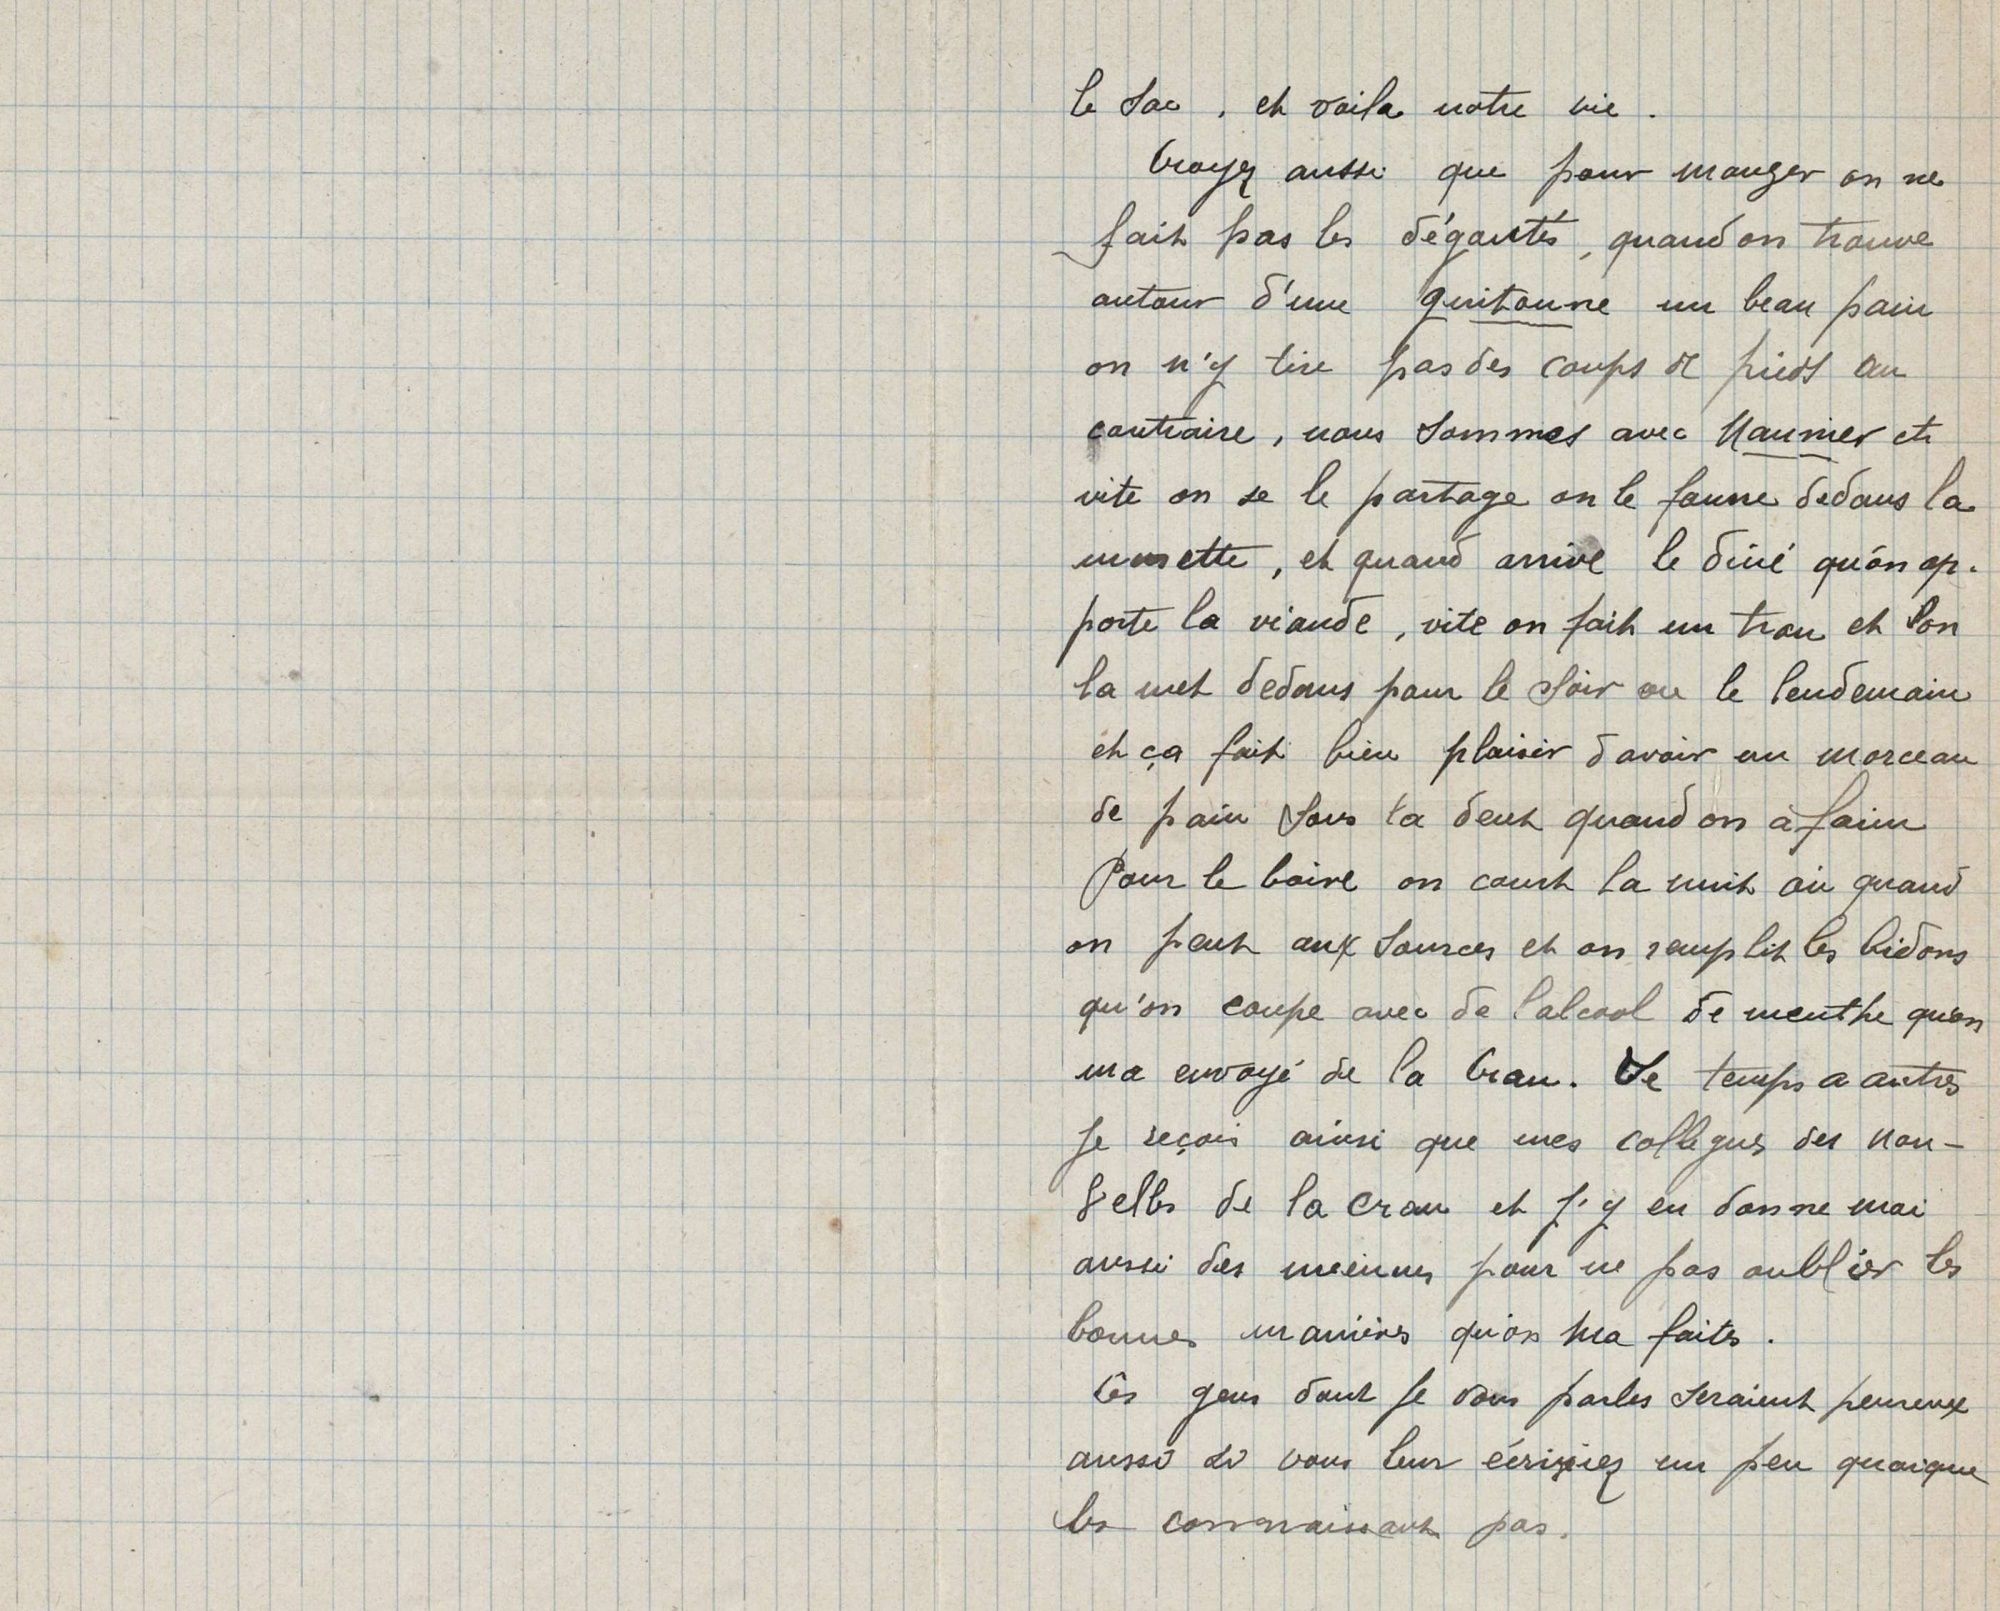 le sac, et voila notre vie.
Croyez aussi que pour manger on ne
fait pas les dégoutés, quand on trouve
autour d'une guitoune un beau pain
on n'y tire pas des coups de pieds au
contraire, nous sommes avec Maunier et
vite on se le partage on le fourre dedans la
musette, et quand arrive le diné qu'on ap-
porte la viande, vite on fait un trou et l'on
la met dedans pour le soir ou le lendemain
et ça fait bien plaisir d'avoir un morceau
de pain sous la dent quand on à faim
Pour le boire on court la nuit où quand
on peut aux sources et on remplit les bidons
qu'on coupe avec de l'alcool de menthe qu'on
ma envoyé de la Crau. De temps a autres
Je reçois ainsi que mes collegues des nou-
velles de la crau et j'y en donne moi
aussi des miennes pour ne pas oublier les
bonnes manières qu'on ma faites.
Ces gens dont Je vous parles seraient heureux
aussi si vous leur écriviez un peu quoique
les connaissant pas.